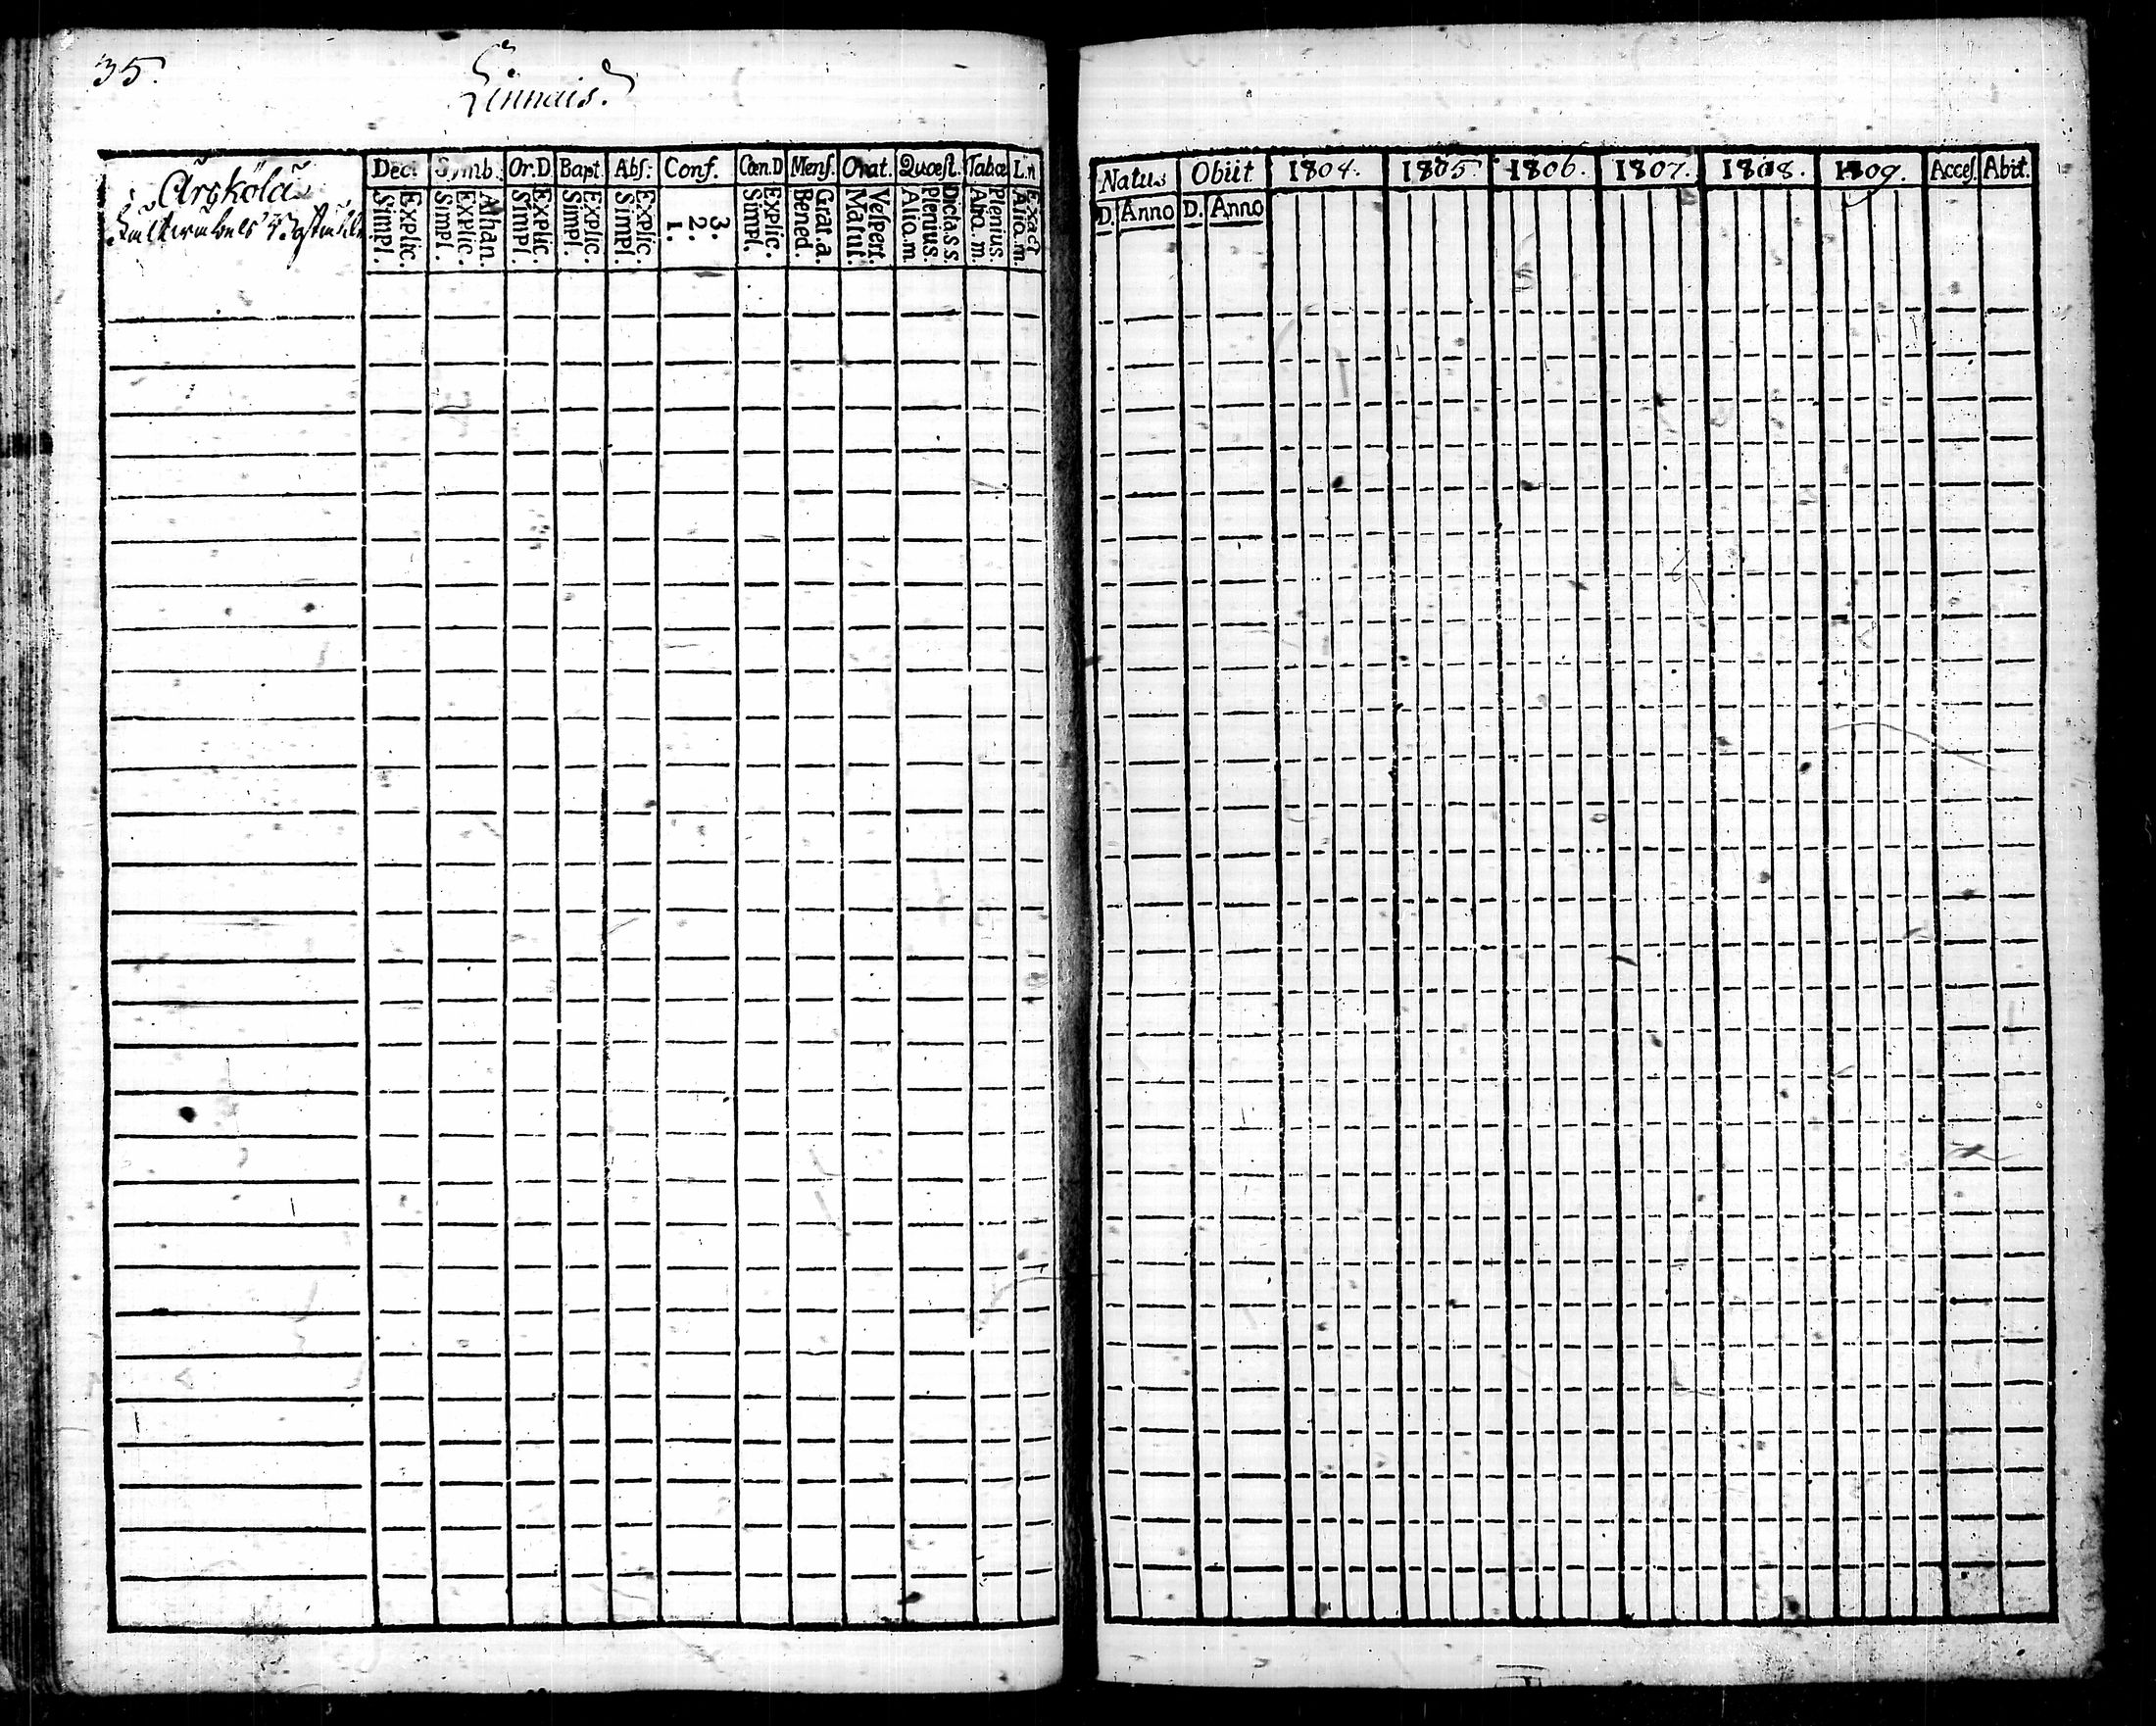 35.
Linnais.
Argkåla
Dec. Symb. Or.D Bapt. Abs: Conf. Cœn.D Mens. Orat. Quœst. Tabœ L.n
Simpl. Explic. Simpl. Explic. Athan. Simpl. Explic. Simpl. Explic. Simpl. Explic. 1. 2. 3. Simpl. Explic. Bened. Grat.a. Matut. Vespert. Alio.m Plenius. Dicta s.s. Alio.m. Plenius. Alio.m. Exact
Natus Obiit 1804. 1805. 1806. 1807. 1808. 1809. Acces. Abiit.
D. Anno D. Anno